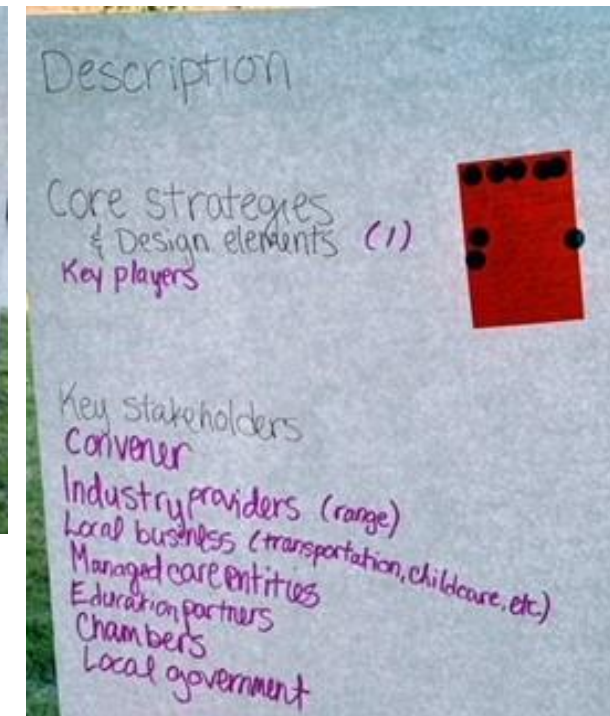 Description
Core strategies
& Design elements (1)
Key players
Key stakeholders
Convener
Industry providers (range)
Local business (transportation, childcare, etc.)
Managed care entities
Education partners
Chambers
Local government